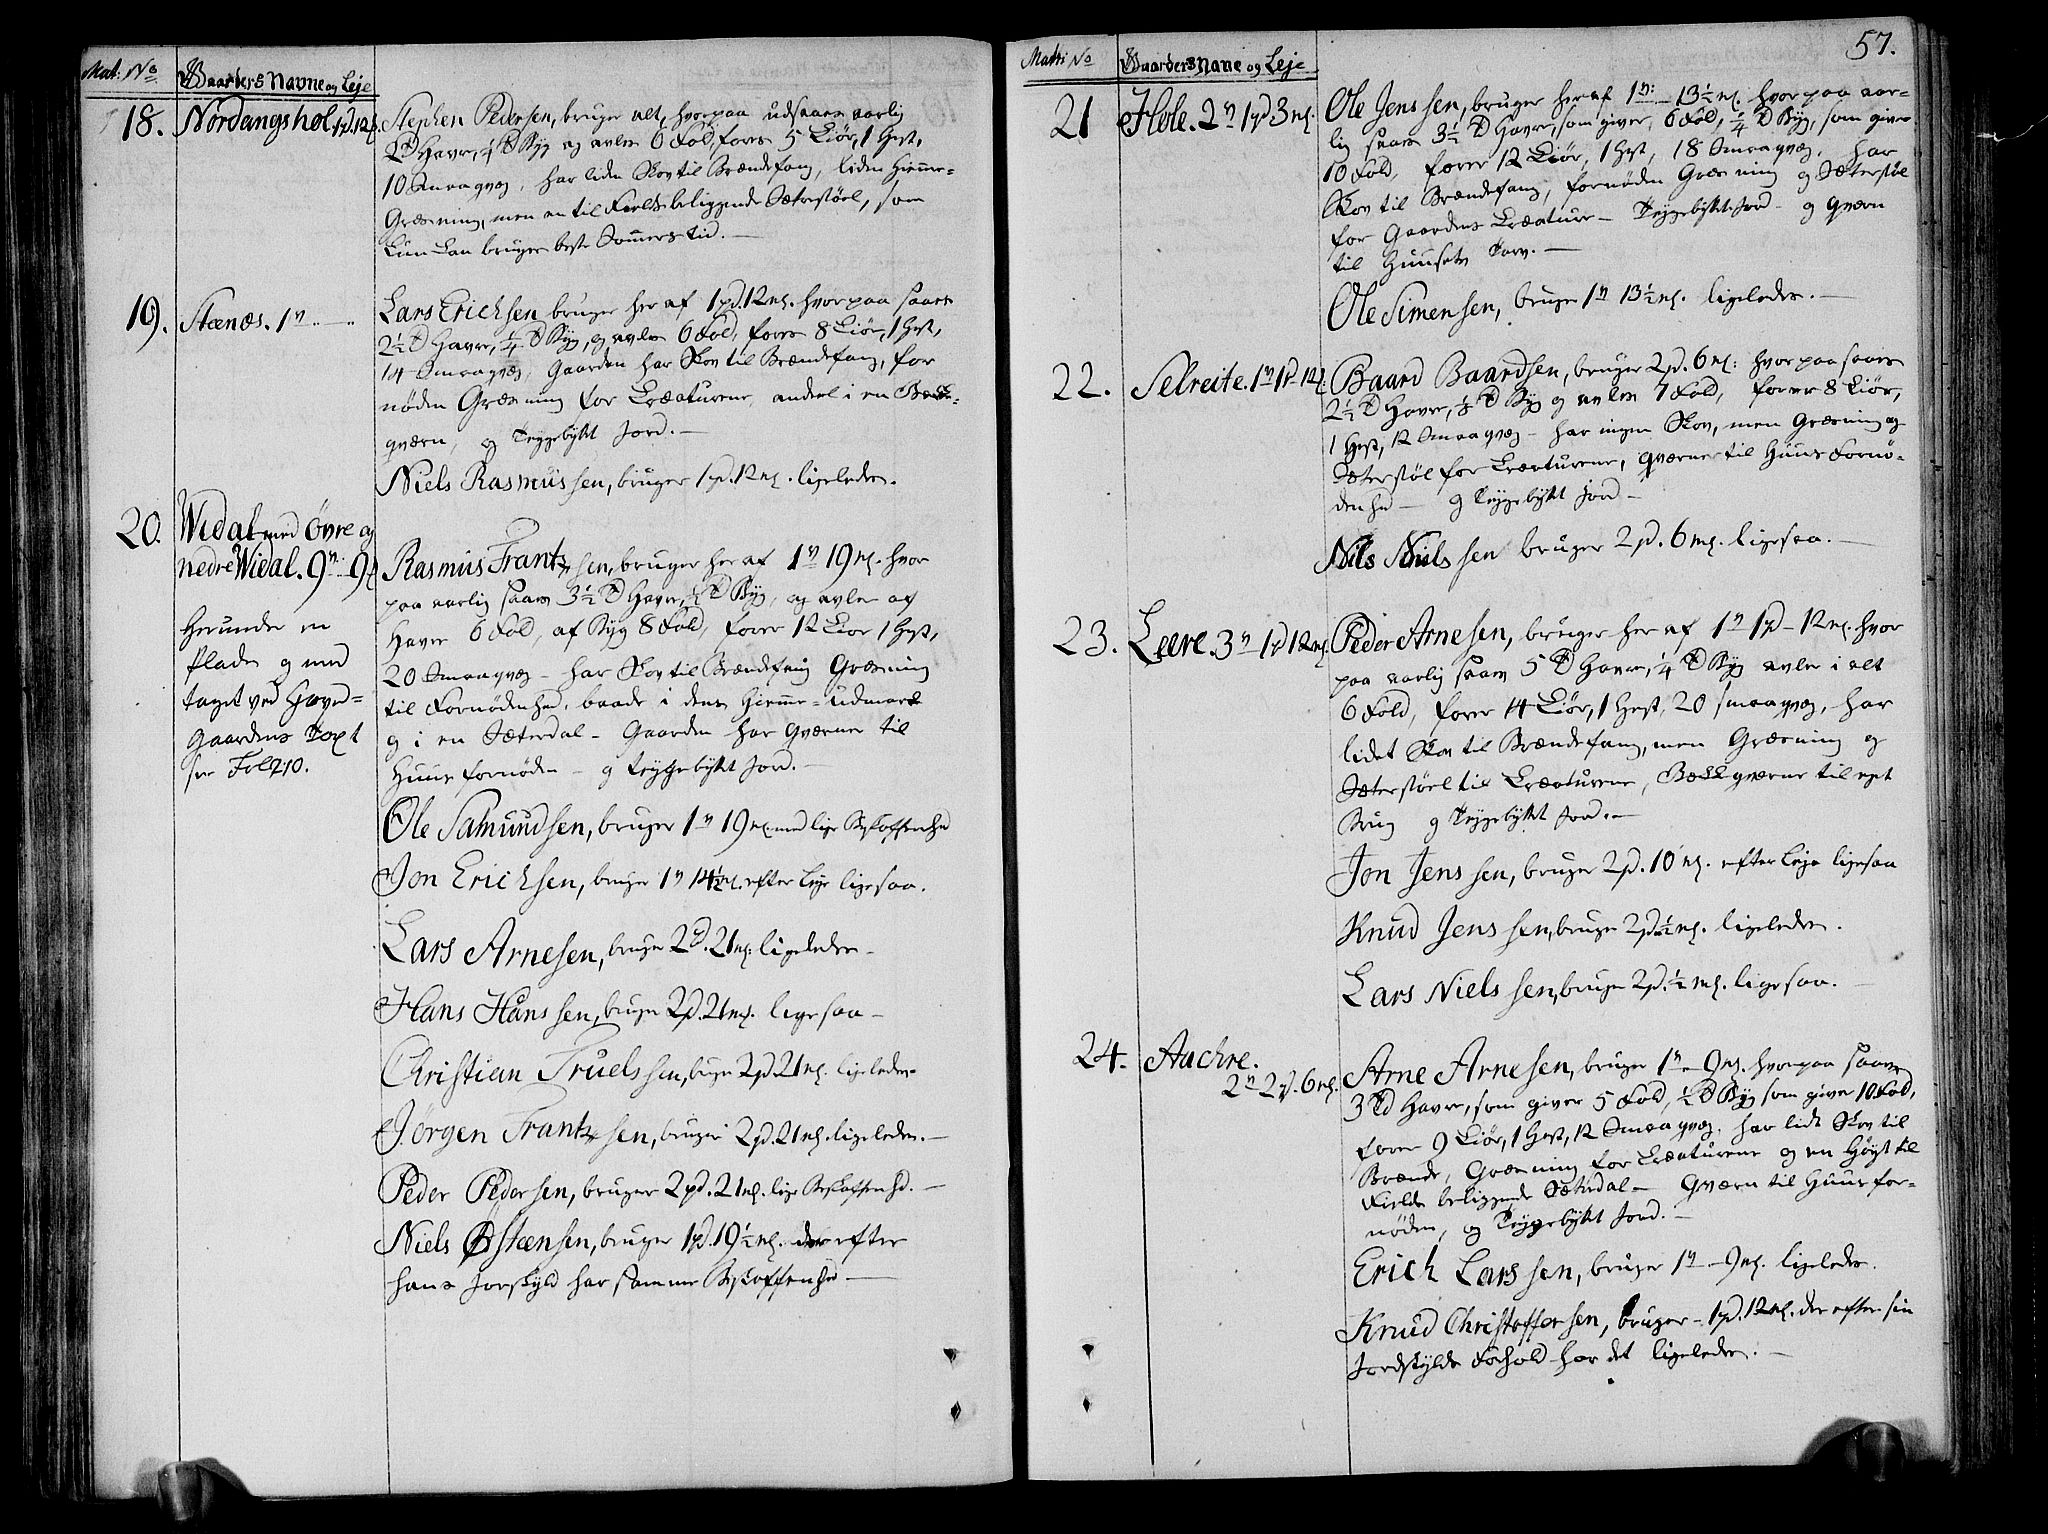 Mat: No
Gaarders Navne og Leje
18. Nordangshol. 1 pd 12 mk.
Stephen Pedersen, bruger alt, hvorpaa udsaaes aarlig
2 Td Havre, 1/4 Td Byg og avler 6 Fold, foerer 5 Kiør, 1 Hest,
10 Smaaqvæg, har liden Skov til Brændefang, liden Hiemme-
Græsning, men en til Fields beliggende Sæterstøel, som
kun kan bruges beste Sommers tid. —
19. Stænæs. 1 v
Lars Erichsen bruger her af 1 pd. 12 mk. hvorpaa saaes
2 1/2 Td Havre, 1/4 Td Byg, og avler 6 Fold, foerer 8 Kiør, 1 Hest,
14 Smaaqvæg, Gaarden har Skov til Brændefang, for
nøden Græsning for Creaturerne, andeel i en Bæk-
qværn, og Tyggebykt Jord. —
Niels Rasmussen, bruger 1 pd. 12 mk. ligeledes.
20. Widal med Øvre og
nedre Widal. 9 v 9
Herunder en
Plads og med
taget ved Hoved-
gaardens Taxt
see Fol 210.
Rasmus Frantzsen, bruger her af 1 v 19 mk. hvor
paa aarlig saaes 3 1/2 Td Havre, 1/2 Td Byg, og avler af
Havre 6 Fold, af Byg 8 Fold, foerer 12 Kiør 1 Hest,
20 Smaaqvæg — har Skov til Brændefang Græsning
til Fornødenhed, baade i dens Hiemme-Udmark
og i en Sæterdal — Gaarden har Qværner til
Huus fornøden — og Tyggebykt Jord. —
Ole Samundsen, bruger 1 v 19 mk med lige Beskaffenhed
Jon Erichsen, bruger 1 v 14 1/2 mk. efter Leje ligesaa.
Lars Arnesen, bruger 2 pd. 21 mk: ligeledes —
Hans Hanssen, bruger 2 pd. 21 mk. ligesaa —
Christian Truelssen, bruger 2 pd. 21 mk. ligeledes
Jørgen Frantzsen, bruger 2 pd. 21 mk. ligeledes. —
Peder Pedersen, bruger 2 pd. 21 mk. lige Beskaffenhed. —
Niels Østensen, bruger 1 pd. 19 1/2 mk. der efter
hans Jorskyld har samme Beskaffenhed —
57.
Matr: No
Gaarders Navne og Leje
21 Hole. 2 v 1 pd 3 mk.
Ole Jenssen, bruger her af 1 v: — 13 1/2 mk. hvorpaa aar-
lig saaes 3 1/2 Td Havre, som giver 6 Fold, 1/4 Td Byg, som giver
10 Fold, foerer 12 Kiør, 1 Hest, 18 Smaaqvæg, har
Skov til Brændefang, fornøden Græsning og Sæterstøl
for Gaardens Creature — Tyggebykt Jord — og Qværn
til Huusets Tarv. —
Ole Simensen, bruger 1 v 13 1/2 mk. ligeledes. —
22. Selreite. 1 v 1 pd 12
Baard Baardsen, bruger 2 pd. 6 mk: hvorpaa saaes
2 1/2 Td Havre, 1/8 Td Byg og avler 7 Fold, foerer 8 Kiør,
1 Hest, 12 Smaaqvæg — har ingen Skov, men Græsning og
Sæterstøl for Creaturerne, Qværner til Huus Fornø-
denhed — og Tyggebykt Jord —
Nils Nielssen bruger 2 pd. 6 mk. ligesaa. —
23. Leere. 3 v 1 pd 12 mk.
Peder Arnesen, bruger her af 1 v 1 pd — 12 mk. hvor
paa aarlig saaes 5 Td Havre, 1/4 Td Byg avler i alt
6 Fold, foerer 14 Kiør, 1 Hest, 20 smaaqvæg, har
lidet Skov til Brændefang, men Græsning og
Sæterstøel til Creaturerne, Bækkqværne til eget
Brug og Tyggebykt Jord. —
Jon Jenssen, bruger 2 pd. 10 mk. efter Leje ligesaa
Knud Jenssen, bruger 2 pd 1/2 mk. ligeledes.
Lars Nielssen, bruger 2 pd. 1/2 mk. ligesaa.
24. Aachre.
2 v 2 pd. 6 mk.
Arne Arnesen, bruger 1 v — 9 mk. hvorpaa saaes
3 Td Havre, som giver 5 Fold, 1/2 Td Byg som giver 10 Fold,
foerer 9 Kiør, 1 Hest, 12 Smaaqvæg. har lidt Skov til
Brænde, Græsning for Creaturerne og en Høyt til
Fields beliggende Sæterdal — Qværn til Huus for-
nøden, og Tyggebykt Jord. —
Erich Larssen, bruger 1 v — 9 mk. ligeledes.
Knud Christoffersen, bruger — 1 pd. 12 mk. der efter sin
Jordskylds Forhold har det ligeledes. —